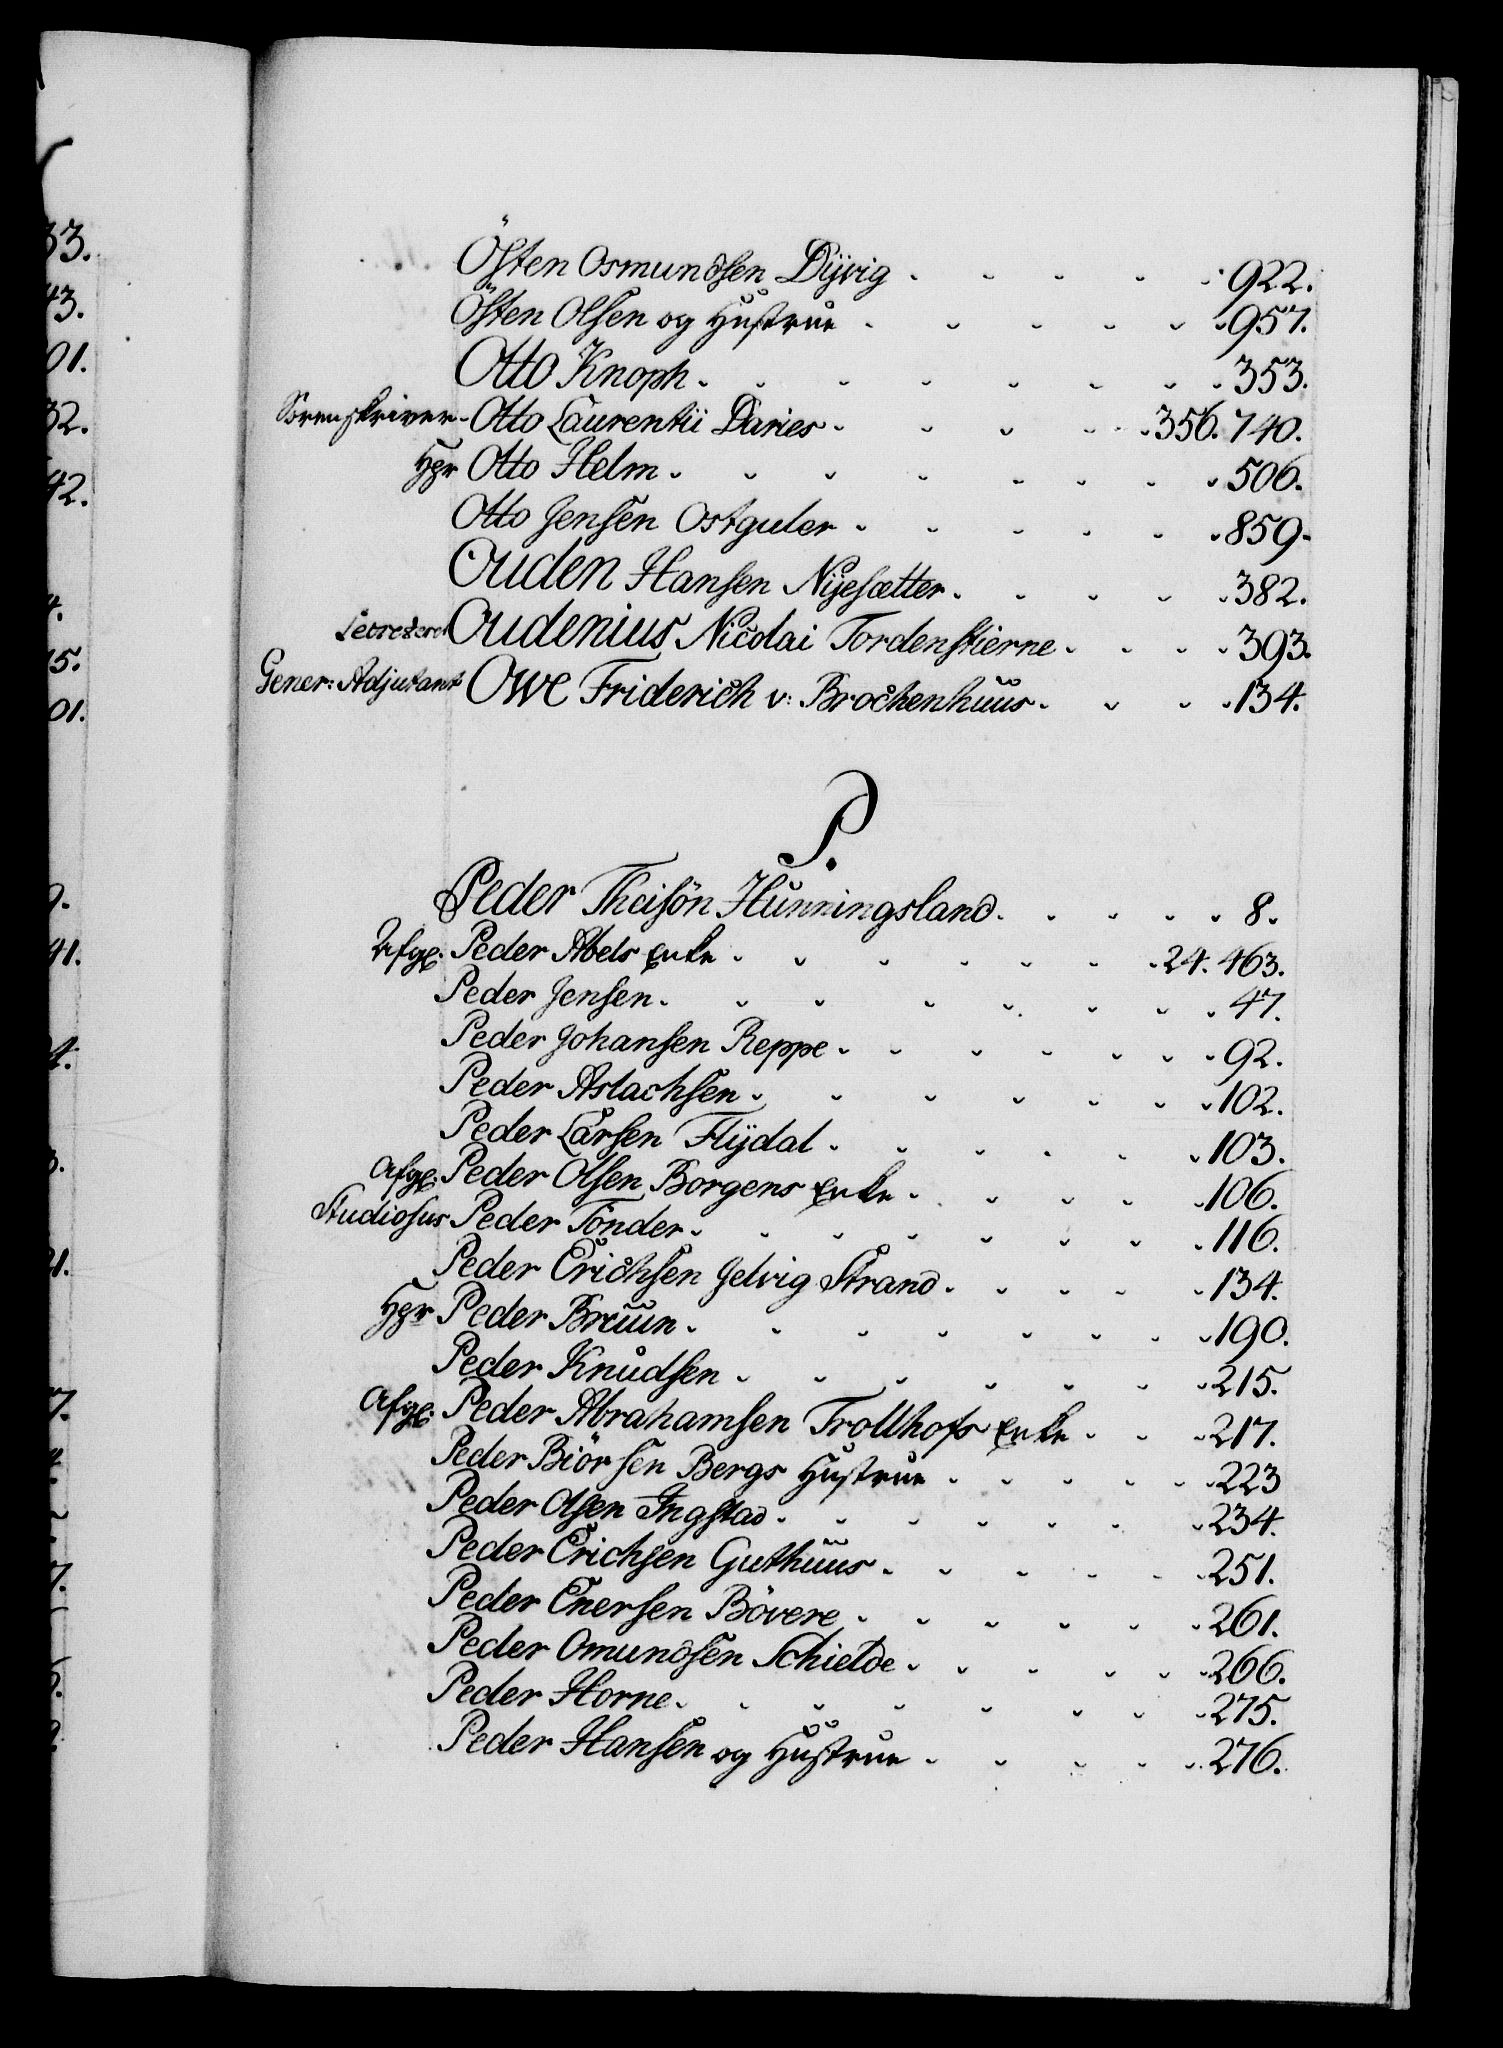 Östen Osmundsen Dÿvig . . . . . 922.
Östen Olsen og Hustrue . . . . . . 957.
Otto Knoph . . . . . . . . 353.
Sorenskriver Otto Laurentii Daries . . . . . 356. 740.
Hgr Otto Helm . . . . . . . . 506.
Otto Jensen Ostguler . . . . . . 859.
Ouden Hansen Nÿesætter . . . . . 382.
Secreterer Oudenius Nicolai Tordenskierne . . . . 393.
Gener: Adjutant Owe Friderich v: Brochenhuus . . . . 134.
P.
Peder Theisön Hunningsland . . . . . 8.
Afgl. Peder Abels Enke . . . . . . . 24. 463.
Peder Jensen . . . . . . . . 47.
Peder Johansen Reppe . . . . . . . 92.
Peder Aslachsen . . . . . . . 102.
Peder Larsen Flÿdal . . . . . . 103.
Afgl. Peder Olsen Borgens Enke . . . . . 106.
Studiosus Peder Tönder . . . . . . . . 116.
Peder Erichsen Jelvig Strand . . . . . 134.
Hgr Peder Bruun . . . . . . . . 190.
Peder Knudsen . . . . . . . 215.
Afgl. Peder Abrahamsen Trollhofs Enke . . . 217.
Peder Biörsen Bergs Hustrue . . . . . . 223
Peder Olsen Ingstad . . . . . . . 234.
Peder Erichsen Guthuus . . . . . . 251.
Peder Enersen Bövere . . . . . . 261.
Peder Omundsen Schielde . . . . . . 266.
Peder Horne . . . . . . . . 275.
Peder Hansen og Hustrue . . . . . 276.